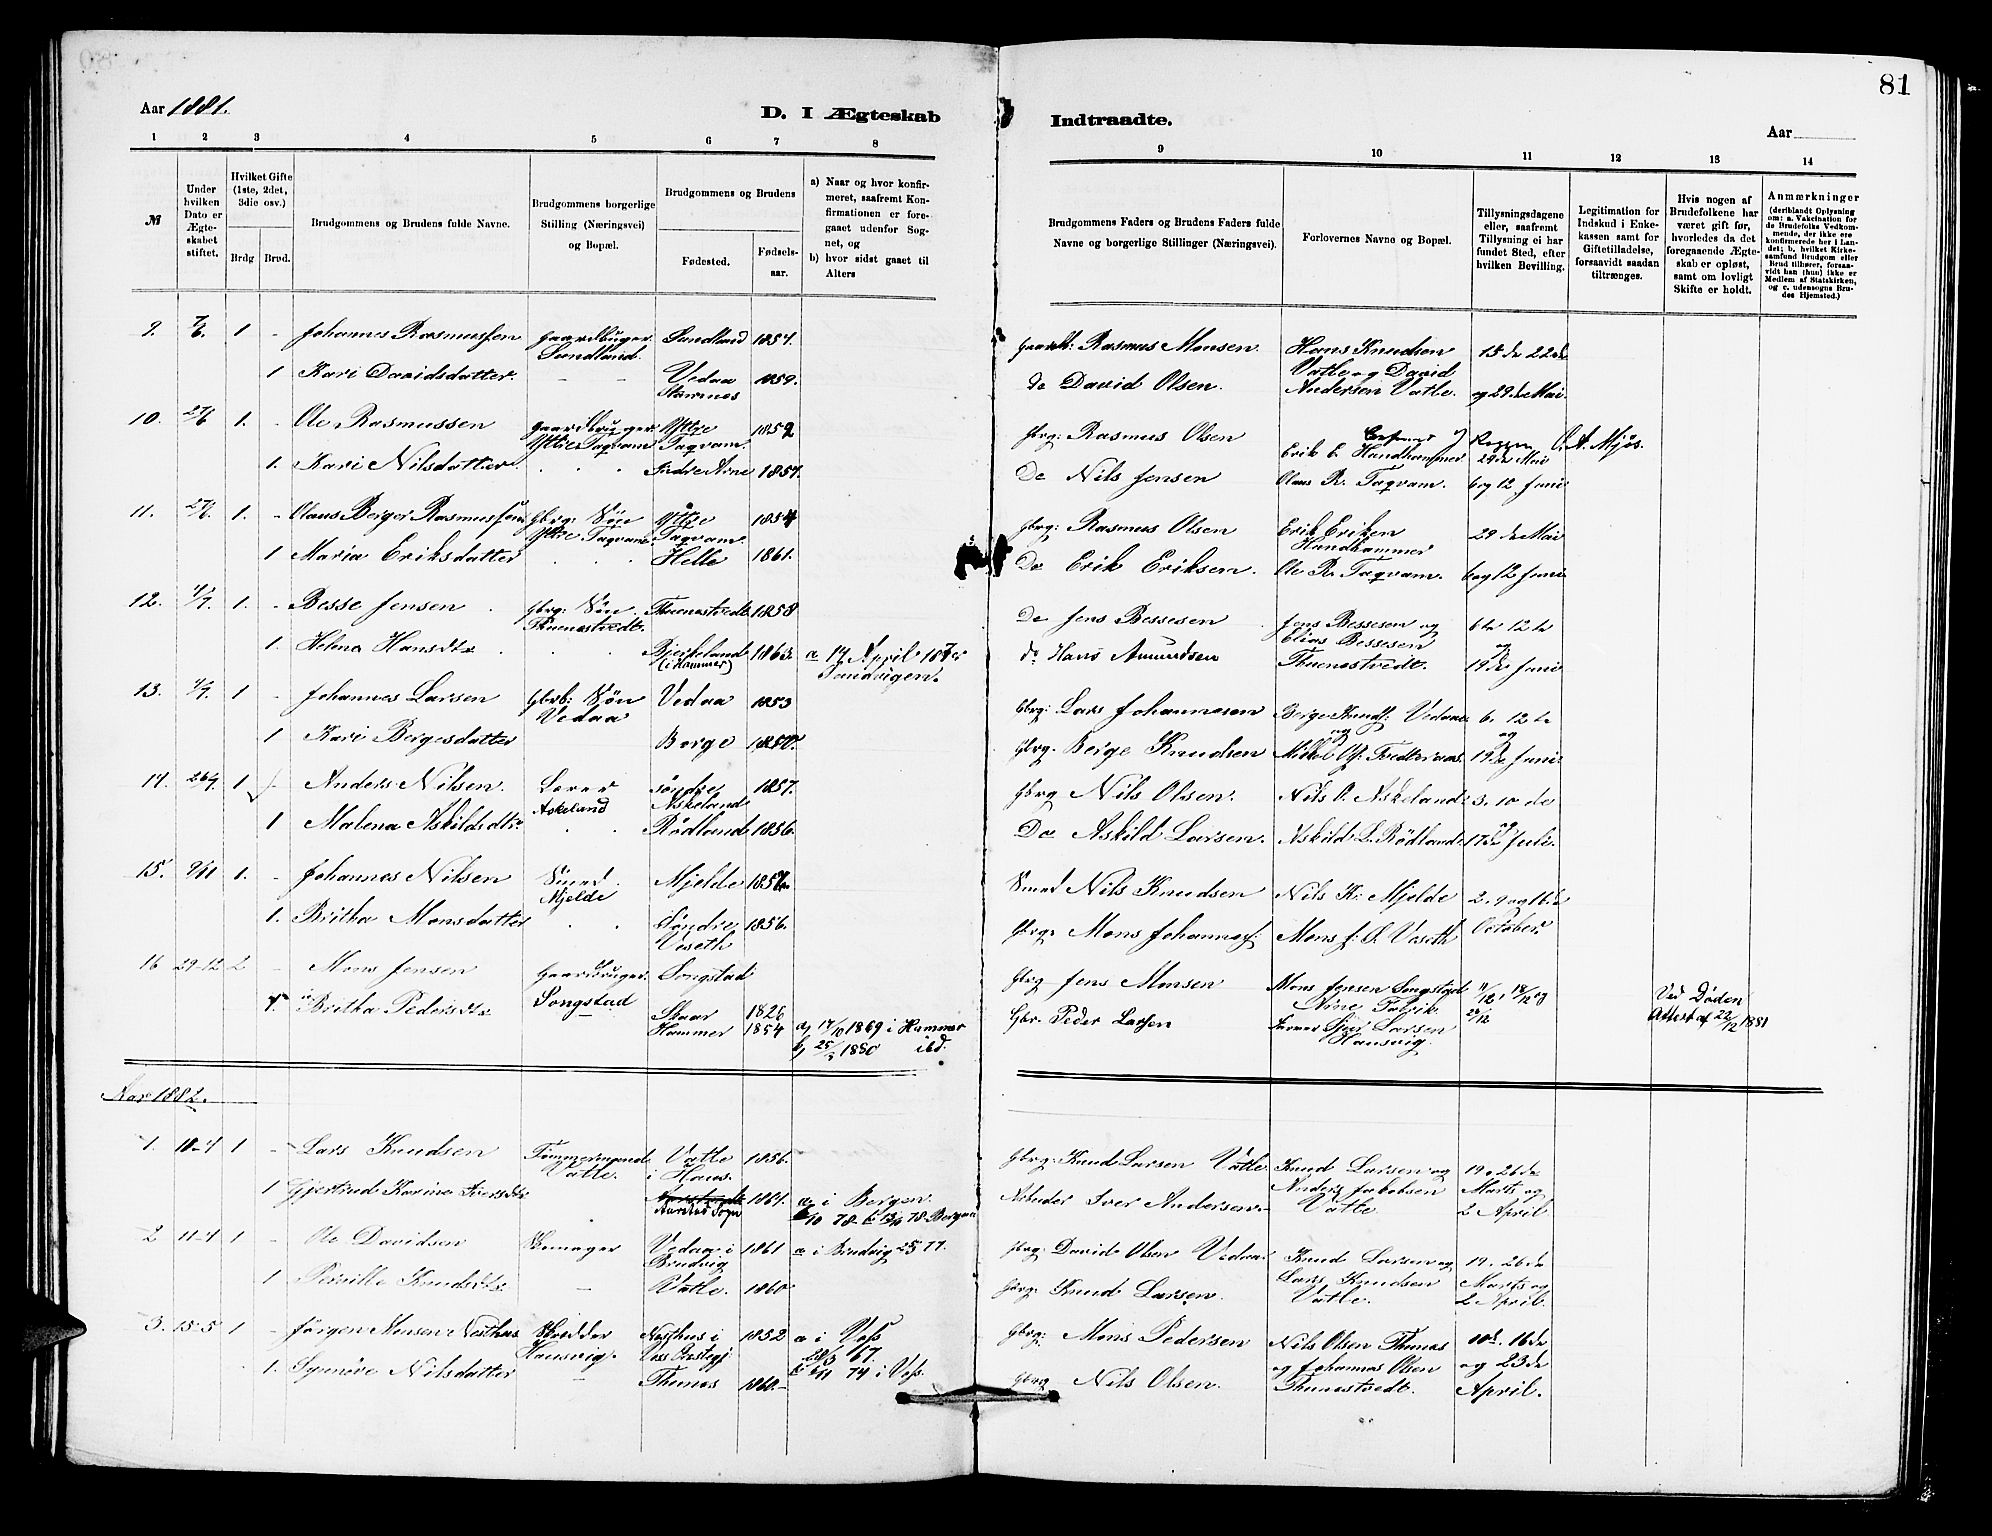 81
Aar 1881.
D. I Ægteskab Indtraadte.
Aar
1 2 3 4 5 6 7 8 9 10 11 12 13 14
№
Under hvilken Dato er Ægteskabet stiftet.
Hvilket Gifte (1ste, 2det, 3die osv.)
Brdg Brud.
Brudgommens og Brudens fulde Navne.
Brudgommens borgerlige Stilling (Næringsvei) og Bopæl.
Brudgommens og Brudens
Fødested.
Fødselsaar.
a) Naar og hvor konfirmeret, saafremt Konfirmationen er foregaaet udenfor Sognet, og
b) hvor sidst gaaet til Alters
Brudgommens Faders og Brudens Faders fulde Navne og borgerlige Stillinger (Næringsvei).
Forlovernes Navne og Bopæl.
Tillysningsdagene eller, saafremt Tillysning ei har fundet Sted, efter hvilken Bevilling.
Legitimation for Indskud i Enkekassen samt for Giftetilladelse, forsaavidt saadan tiltrænges.
Hvis nogen af Brudefolkene har været gift før, hvorledes da det foregaaende Ægteskab er opløst, samt om lovligt Skifte er holdt.
Anmærkninger
(deriblandt Oplysning om: a. Vakcination for de Brudefolks Vedkommende, der ikke ere konfirmerede her i Landet; b. hvilket Kirkesamfund Brudgom eller Brud tilhører, forsaavidt han (hun) ikke er Medlem af Statskirken, og c. udensogns Brudes Hjemsted.)
9. 7/6. 1 - Johannes Rasmussen Gaardbruger Sundland. Sundland 1854. Gaardb: Rasmus Monsen Hans Knudsen 15de 22de
1 Kari Davidsdatter. - - Vedaa Stamnes 1859. do David Olsen. Vatle og David Andersen Vatle. og 29de Mai
10. 27/6 1. - Ole Rasmussen Gaardbruger Yttre Taqvam Yttre Taqvam 1852 Gbrg: Rasmus Olsen Erik E. Handhammer 29de Mai O. A. Mjøs.
1. Kari Nilsdatter Indre Arne 1857. Do Nils Jensen Olaus R. Taqvam. 6 og 12 Juni
11. 27/6. 1. - Olaus Berger Rasmussen Gbrg: Søn Yttre Taqvam. Yttre Taqvam. 1854 Gbrg: Rasmus Olsen Erik Eriksen Handhammer 29de Mai
1 Maria Eriksdatter Helle 1861. Do Erik Eriksen. Ole R. Taqvam. 6 og 12 Juni
12. 4/7. 1. - Besse Jensen Gbrg: Søn Thuenestvedt. Thuenestvedt 1858 Do Jens Bessesen Jens Bessesen og Elias Bessesen 6te 12te og
1. Helena Hansdtr Birkeland (i Hammer) a 14 April Sandvigen. do Hans Amundsen Thuenestvedt. 19de Juni
13. 4/7. 1 - Johannes Larsen Gbrb: Søn Vedaa Vedaa 1853 Gbrg: Lars Johannesen Berge Knudts: Vedaae 6. 12te og
1 Kari Bergesdatter Borge 1850. Gbrg. Berge Knudsen 19de Juni
14. 26/7. 1 - Anders Nilsen. Lærer Askeland søndre Askeland 1857. Gbrg Nils Olsen. Nils O. Askeland 3. 10de og
1 Malena Askildsdtr Rödland 1856. Do Askild Larsen. Askild L. Rödland 17de Juli.
15. 9/11 1. - Johannes Nilsen Smed Mjelde Mjelde Smed Nils Knudsen Nils K. Mjelde 2. 9 og 16de
1. Britha Monsdatter Söndre Veseth 1856. Gbrg. Mons Johannes: Mons J. Ø. Veseth October.
16 29-12 2 - Mons Jensen Gaardbruger Songstad Songstad 1826 Gbrg Jens Monsen Mons Jensen Songstad 11/12, 18/12 og 26/12 Ved Døden
1. Britha Pedersdtr Skaar Hammer 1854 a, 17/10 1869 i Hammer b, 25/3 1880 ibd. Gbr. Peder Larsen Larsen Hausvig. Attest af 22/12 1881
Aar 1882.
1. 10-4 1 - Lars Knudsen Tømmermand Vatle. Vatle i Haus. 1856. Gbrg: Knud Larsen Vatle Knud Larsen og Anders Jakobsen Vatle 19. 26de Marts og 2 April
1 Gjertrud Karine Iversdtr 1851. a, i Bergen. 78 78 Bergen Arbeider Iver Andersen
2 11-4 1 - Ole Davidsen Skomager Vedaa i Bruvig 1861 a i Bruvig 25 77. Gbrg: David Olsen Vedaa Knud Larsen og Lars Knudsen Vatle. 19. 26de Marts og 2 April.
1 Pernille Knudsdtr - Vatle. 1860 Gbrg: Knud Larsen.
3. 15-5 1 - Jørgen Monsen Nesthus Skrædder Hausvig. Nesthus i Voss Prestegj: 1852 a i Voss 28/3 67. b 6/11 74 i Voss. Gbrg: Mons Pedersen Nils Olsen Thunes 10de. 16de
1. Synnöve Nilsdatter - Thunes 1860 Gbrg Nils Olsen. og Johannes Olsen Thunestvedt. og 23de April.